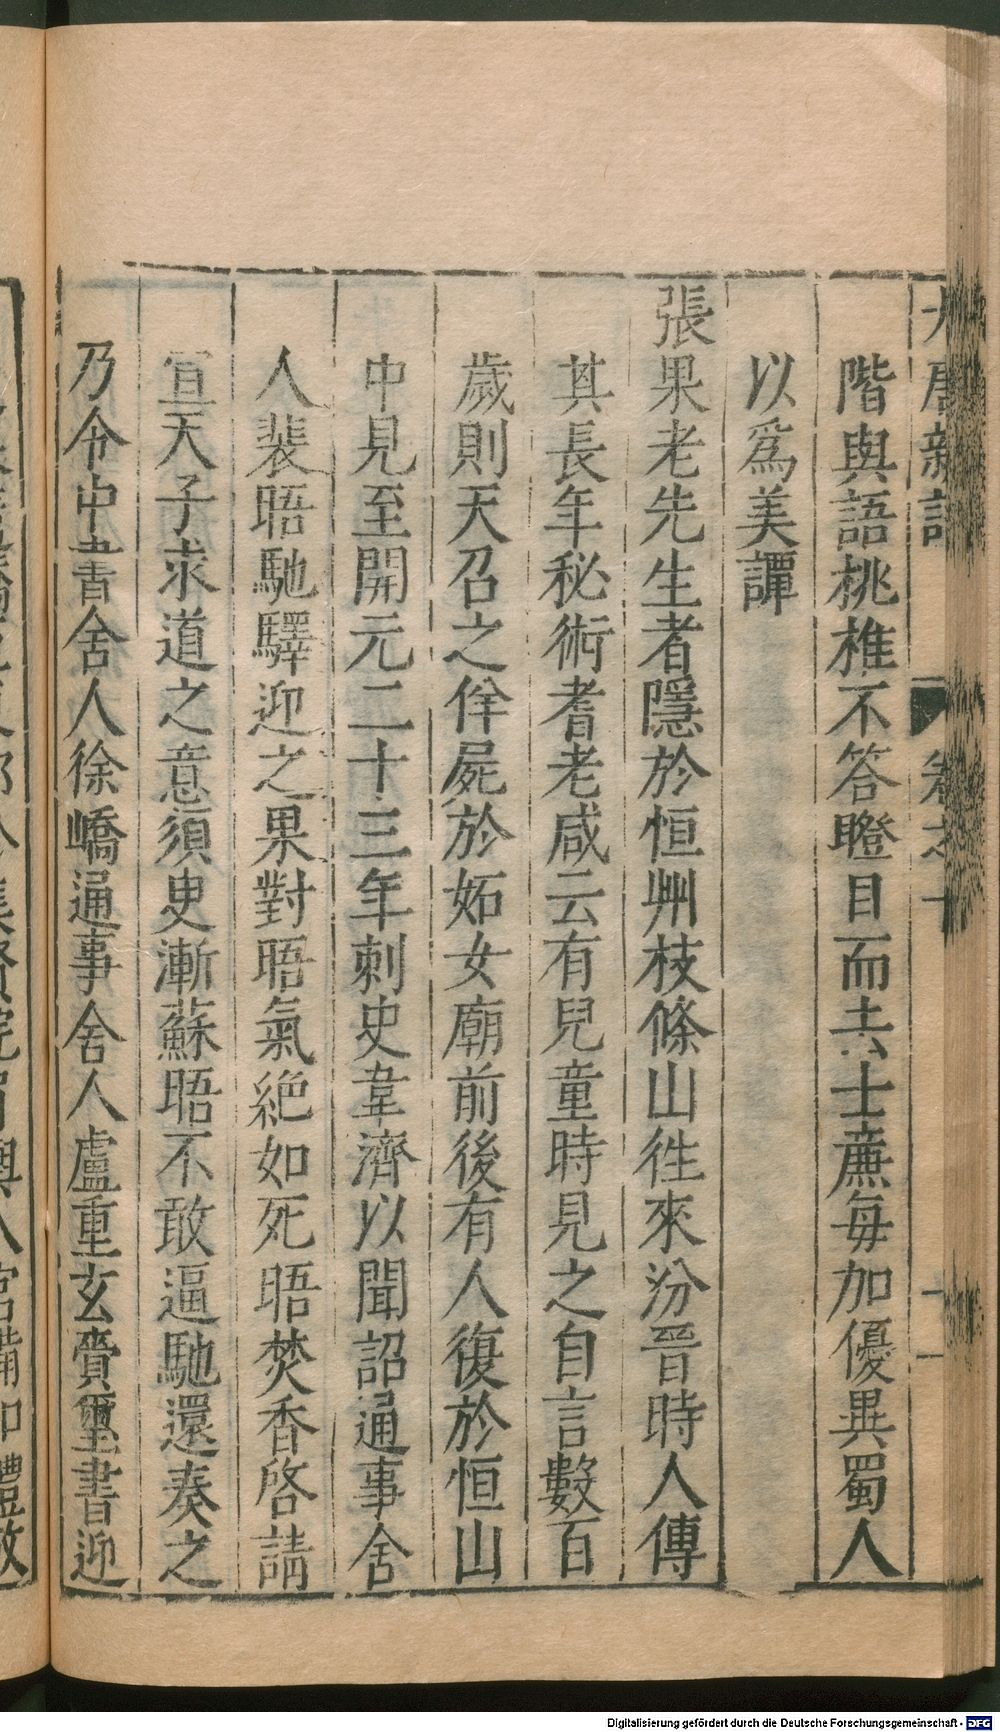 大唐新語 卷之十
階與語桃椎不答瞪目而去士亷每加優異蜀人
以爲美譚
張果老先生者隱於恒州枝條山徃來汾晋時人傳
其長年秘術耆老咸云有兒童時見之自言數百
歲則天召之佯屍於妬女廟前後有人復於恒山
中見至開元二十三年刺史韋濟以聞詔通事舍
人裴晤馳驛迎之果對晤氣絕如死晤焚香啓請
宣天子求道之意須臾漸蘇晤不敢逼馳還奏之
乃令中書舍人徐嶠通事舍人盧重玄賫璽書迎
Digitalisierung gefördert durch die Deutsche Forschungsgemeinschaft - DFG